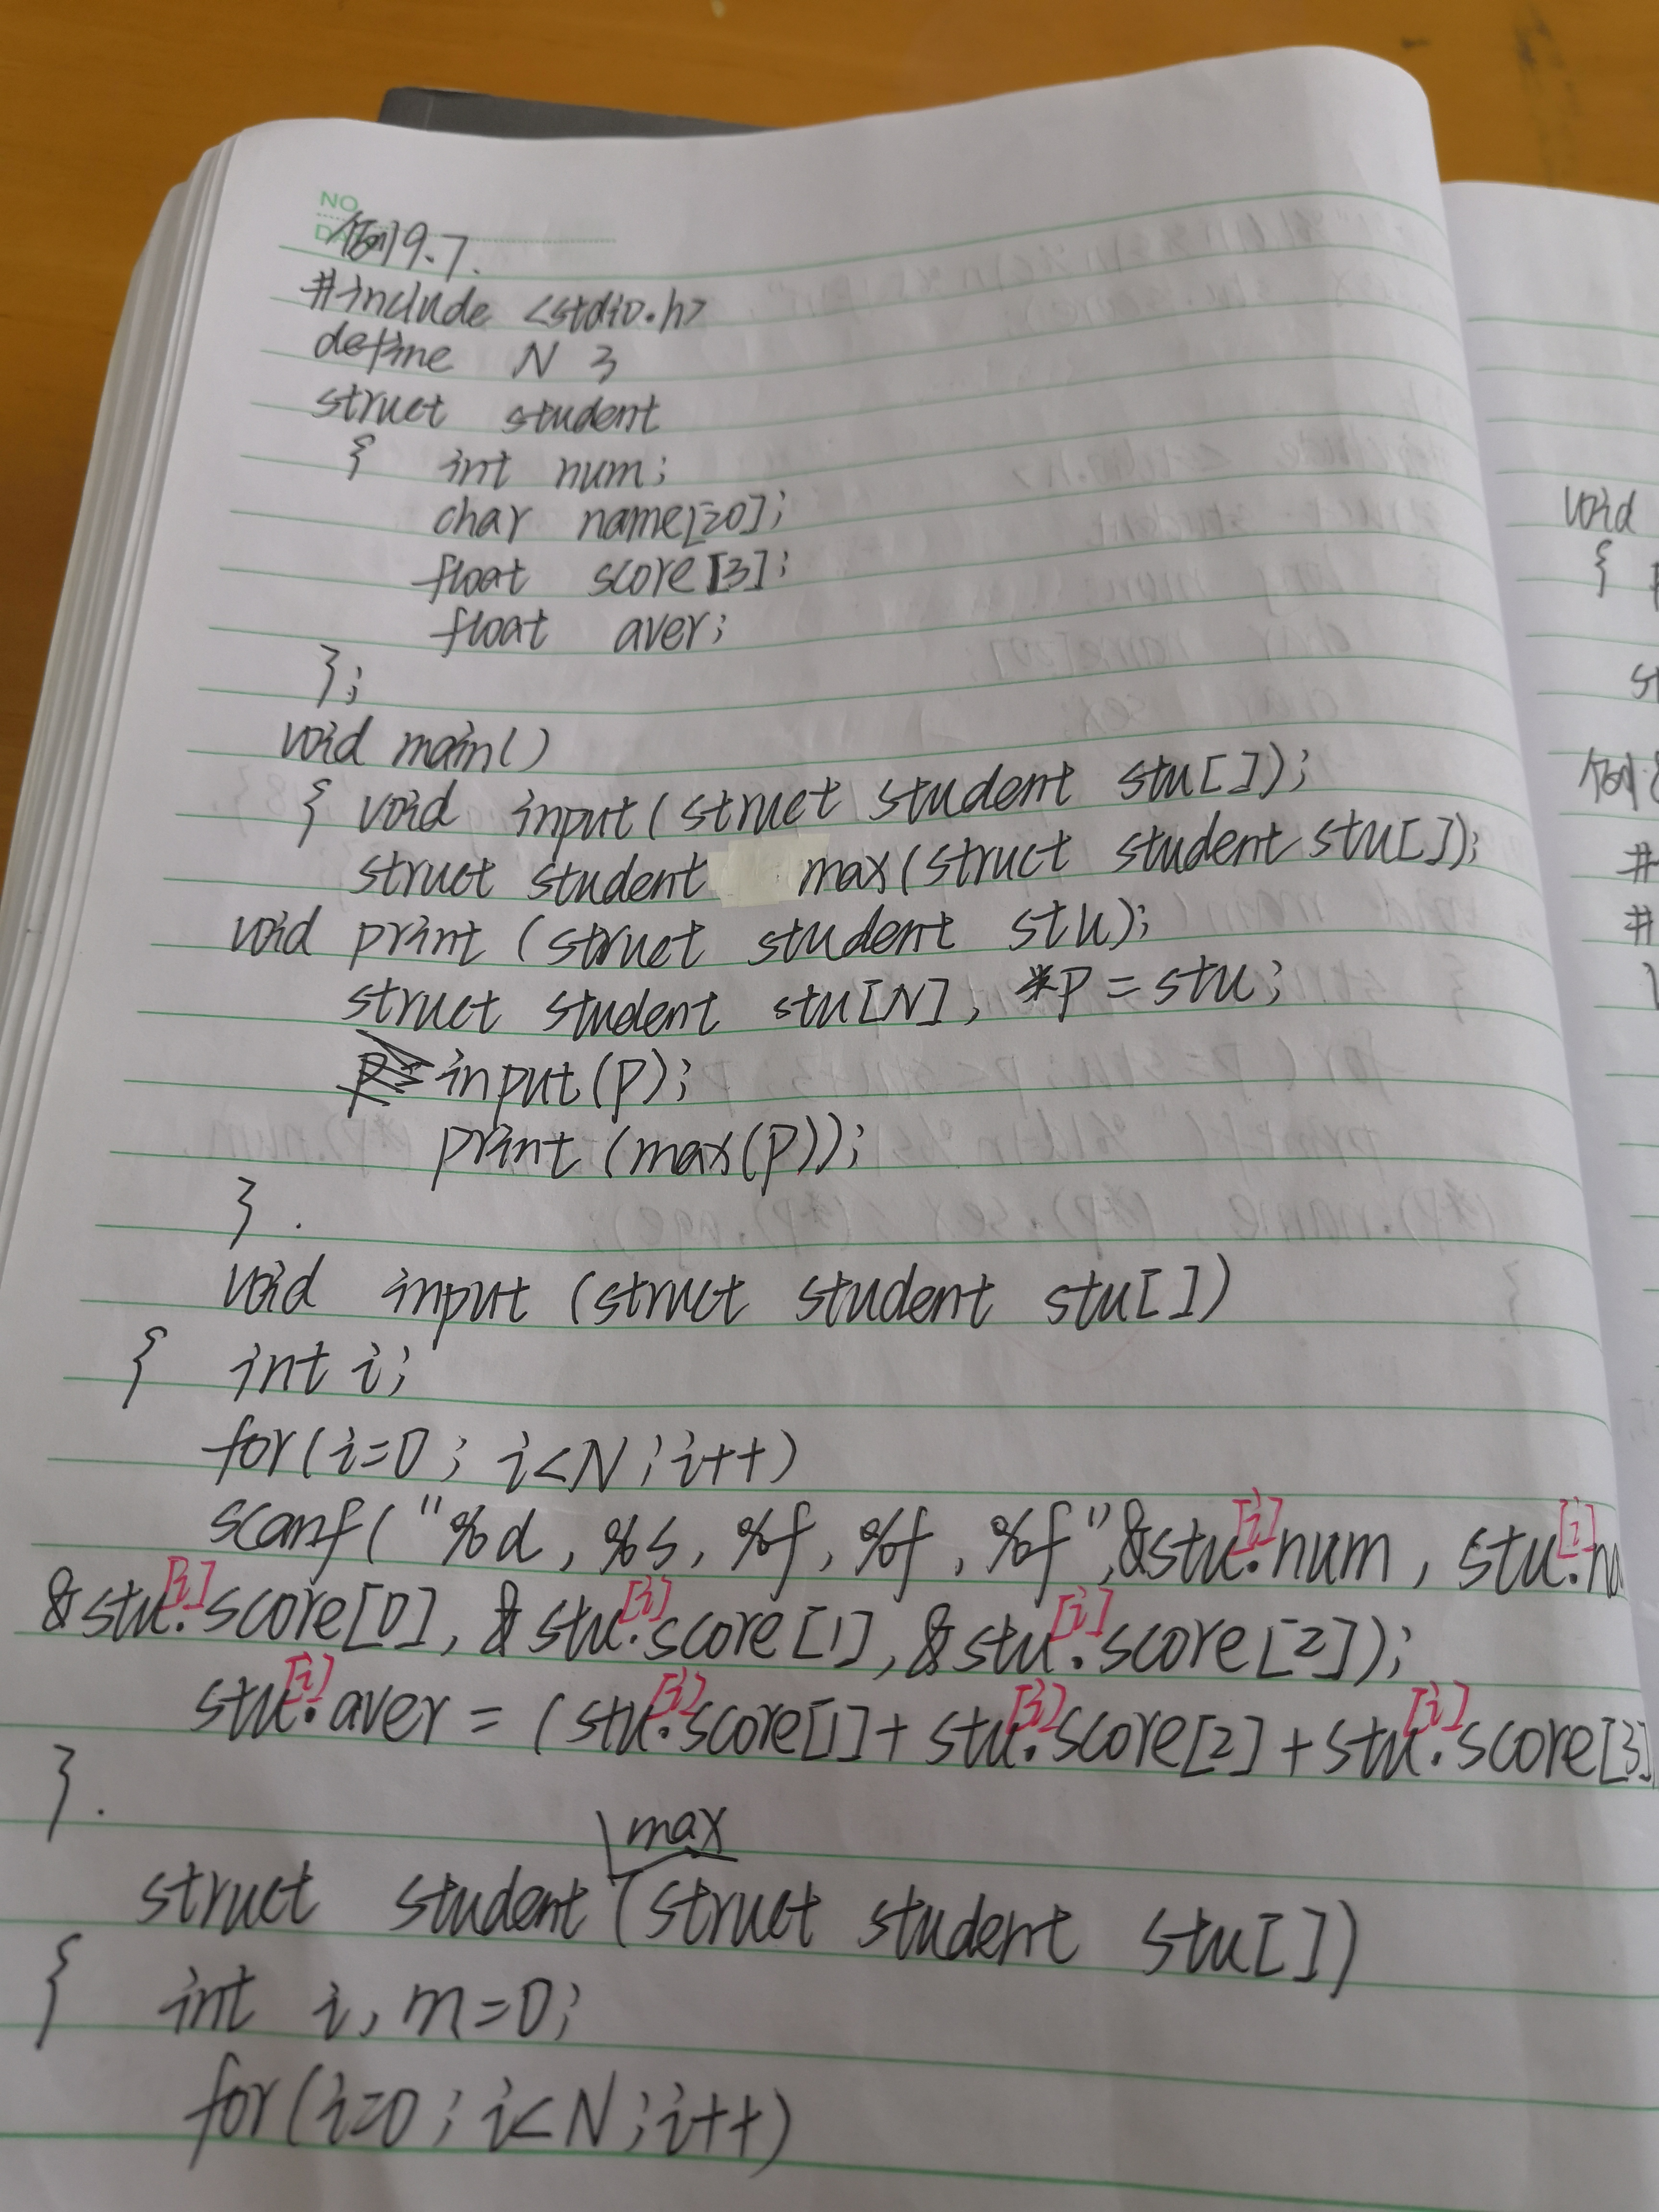 NO.
例9.7.
#include <stdio.h>
define N 3
struct student
{ int num;
char name[20];
float score[3];
float aver;
};
void main()
{ void input(struct student stu[]);
struct student max(struct student stu[]);
void print (struct student stu);
struct student stu[N], *p=stu;
input(p);
print (max(p));
}.
void input (struct student stu[])
{ int i;
for(i=0; i<N; i++)
scanf("%d, %s, %f, %f, %f",&stu[i].num, stu[i].na
&stu[i].score[0], &stu[i].score[1], &stu[i].score[2]);
stu[i].aver = (stu[i].score[1]+stu[i].score[2]+stu[i].score[3]
}.
struct student max(struct student stu[])
{ int i, m=0;
for(i=0; i<N; i++)
void
{
st
例
#
#